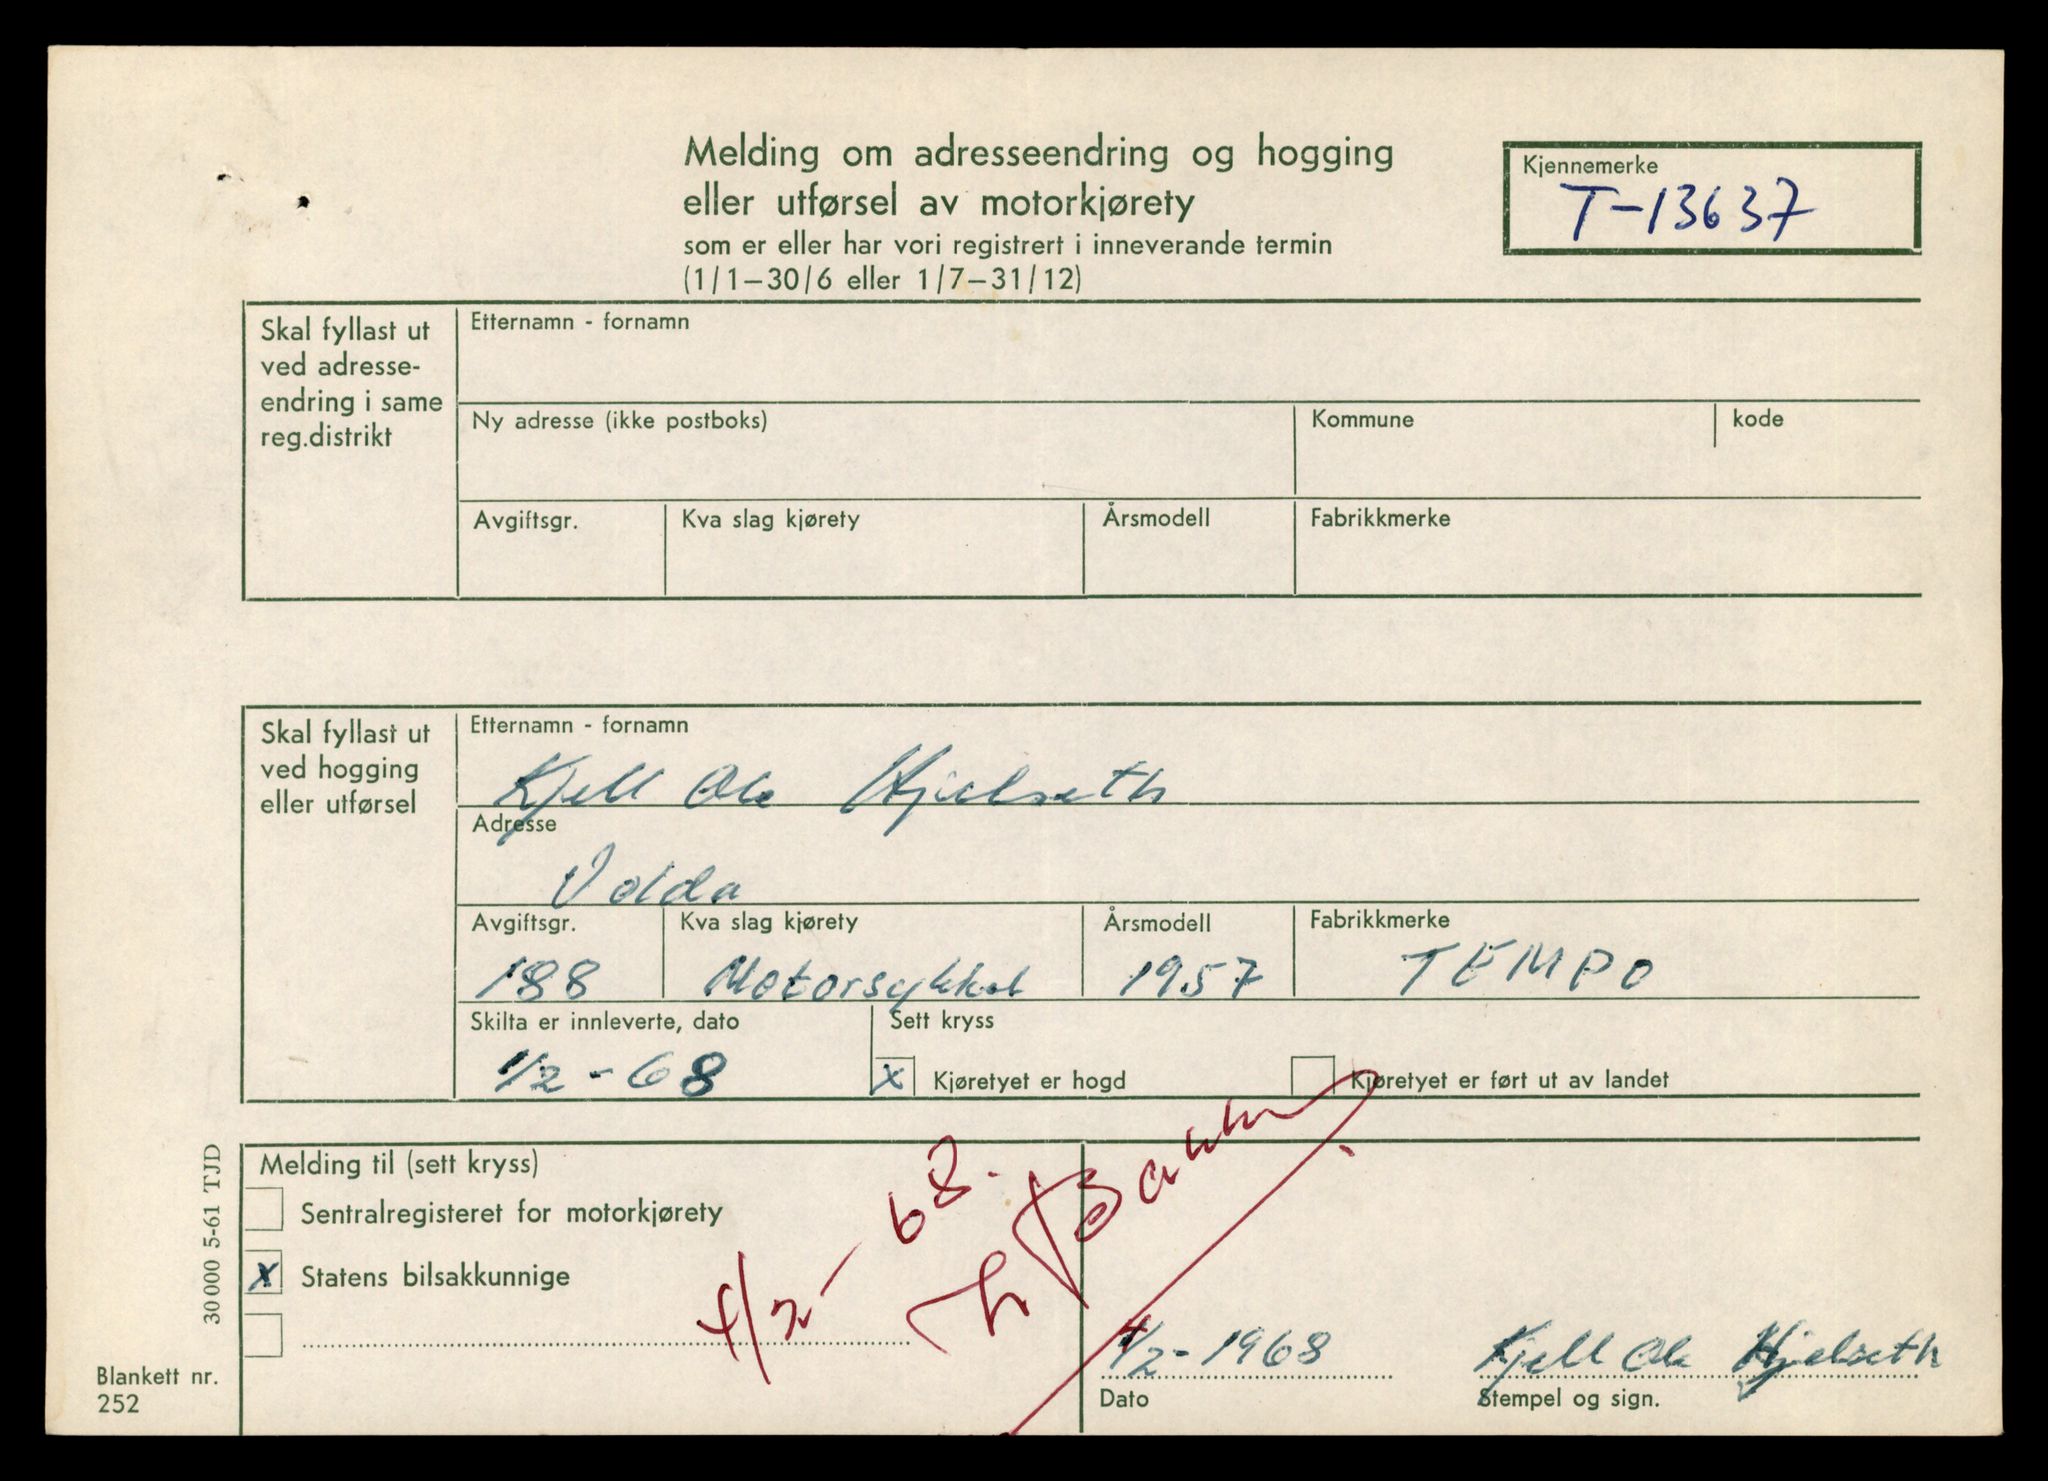 Melding om adresseendring og hogging
eller utførsel av motorkjørety
som er eller har vori registrert i inneverande termin
(1/1–30/6 eller 1/7–31/12)
Kjennemerke
T-13637
Skal fyllast ut
ved adresse-
endring i same
reg.distrikt
Etternamn - fornamn
Ny adresse (ikke postboks)
Kommune
kode
Avgiftsgr.
Kva slag kjørety
Årsmodell
Fabrikkmerke
Skal fyllast ut
ved hogging
eller utførsel
Etternamn - fornamn
Kjell Ole Hjelseth
Adresse
Volda
Avgiftsgr.
188
Kva slag kjørety
Motorsykkel
Årsmodell
1957
Fabrikkmerke
TEMPO
Skilta er innleverte, dato
1/2 - 68
Sett kryss
X Kjøretyet er hogd
Kjøretyet er ført ut av landet
Melding til (sett kryss)
Sentralregisteret for motorkjørety
X Statens bilsakkunnige
4/2 - 68.
1/2 - 1968
Dato
Kjell Ole Hjelseth
Stempel og sign.
30000 5-61 TJD
Blankett nr.
252